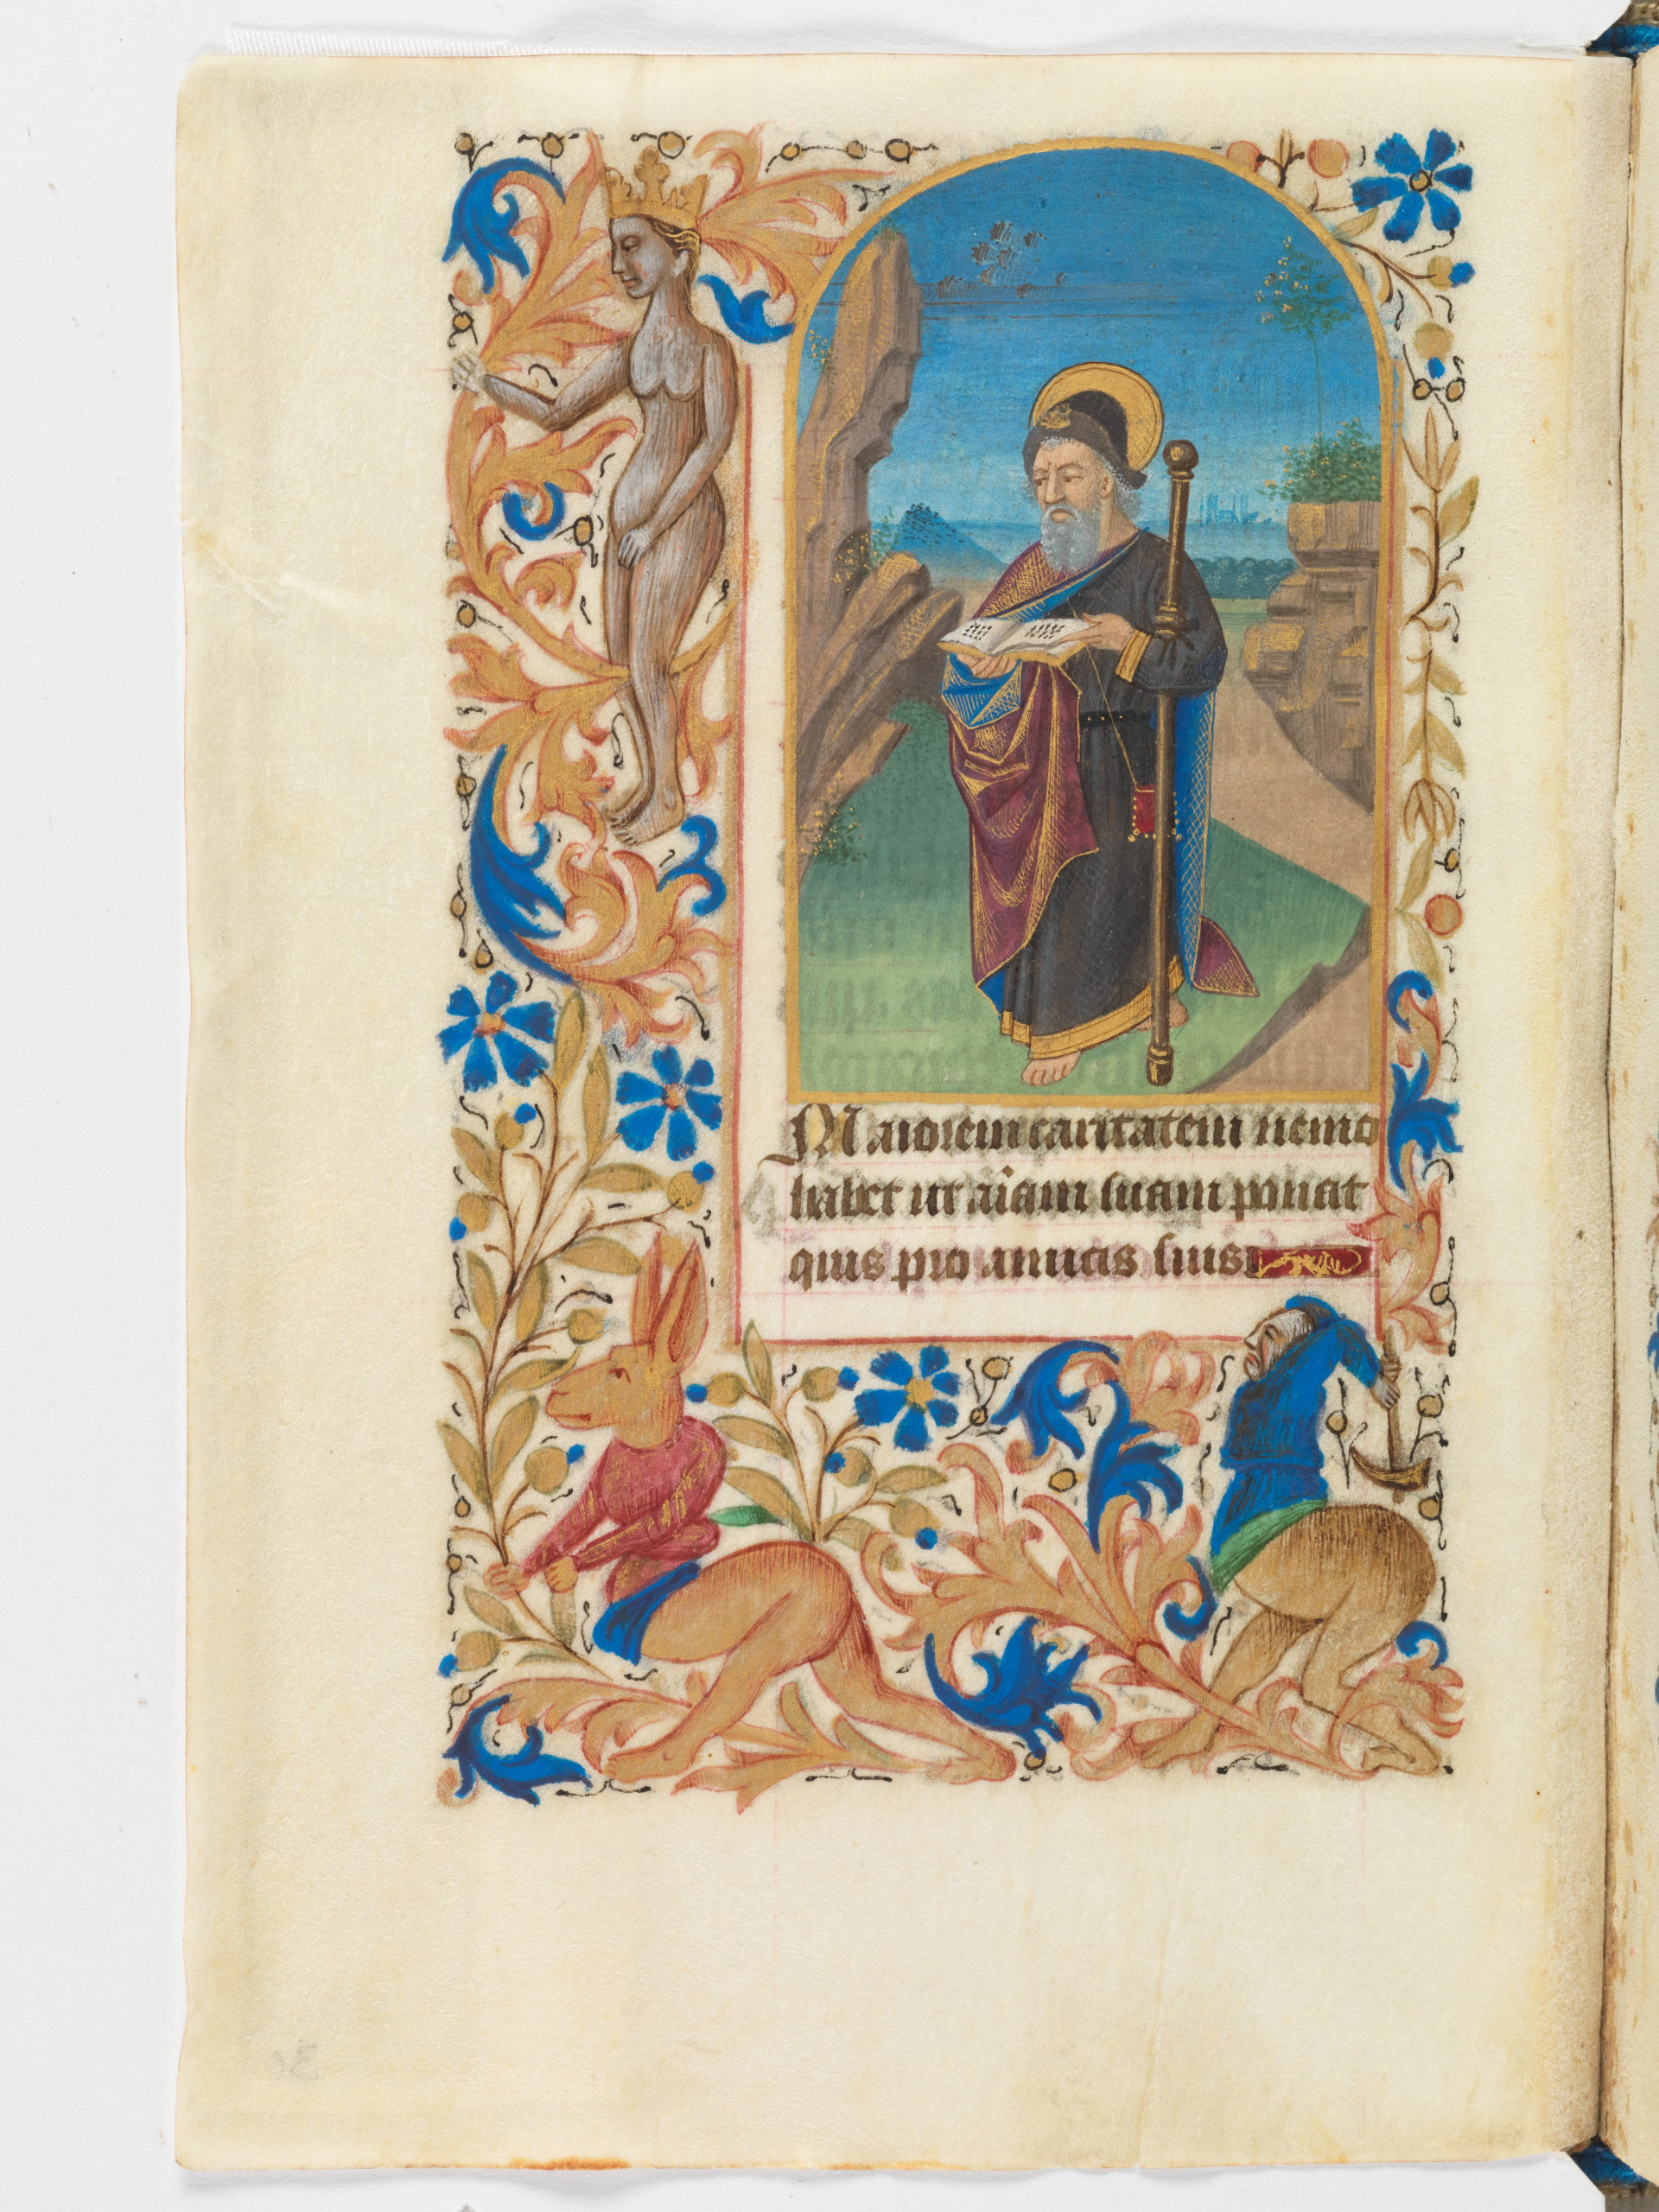 Maiorem caritatem nemo
habet ut aīam suam ponat
quis pro amicis suis